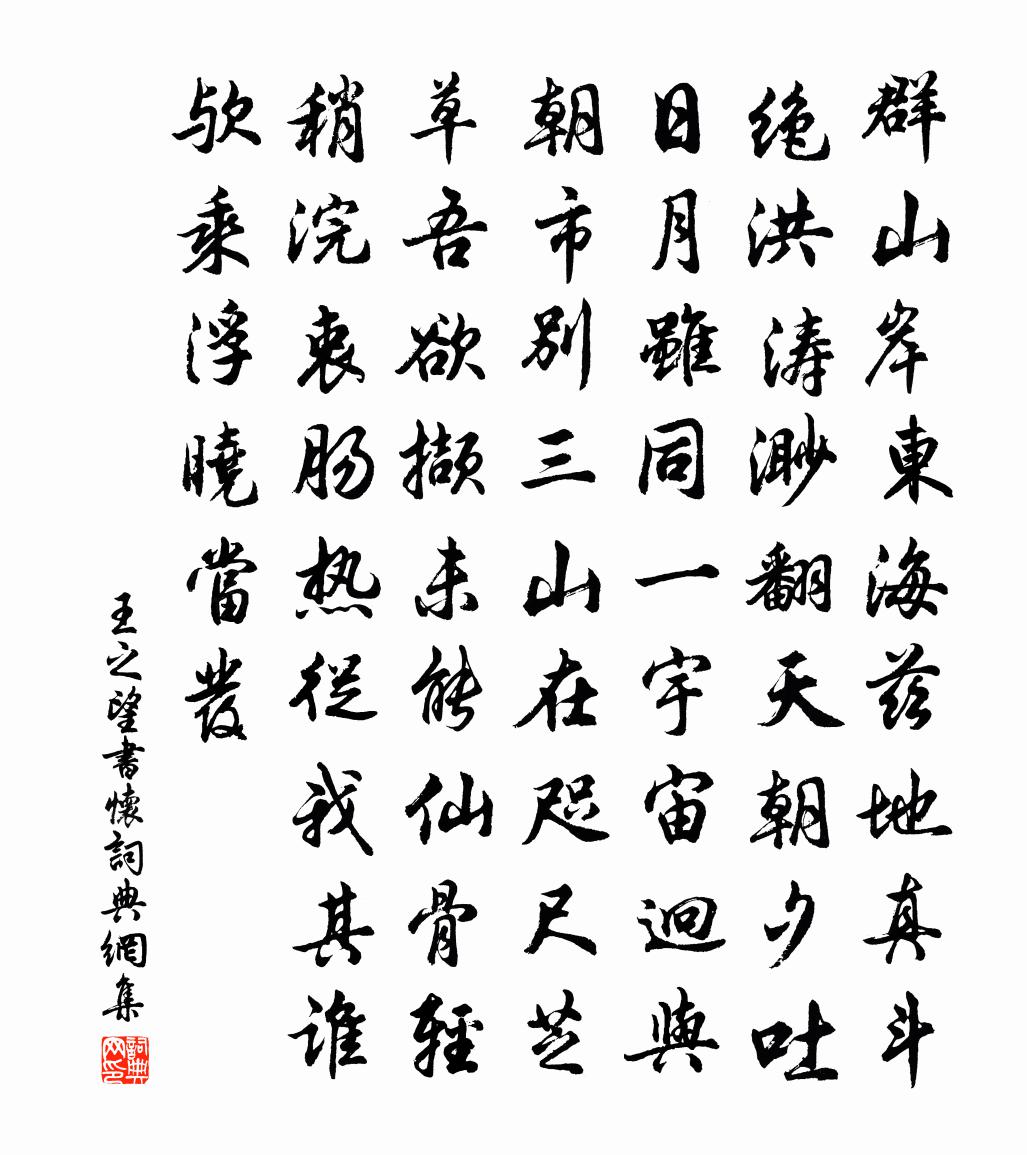 群山岸東海茲地真斗
絶洪涛渺翻天朝夕吐
日月雖同一宇宙迥與
朝市別三山在咫尺芝
草吾欲擷未能仙骨輕
稍浣衷肠热從我其誰
欤乘浮曉當發
王之望書懷詞典網集
詞典网印